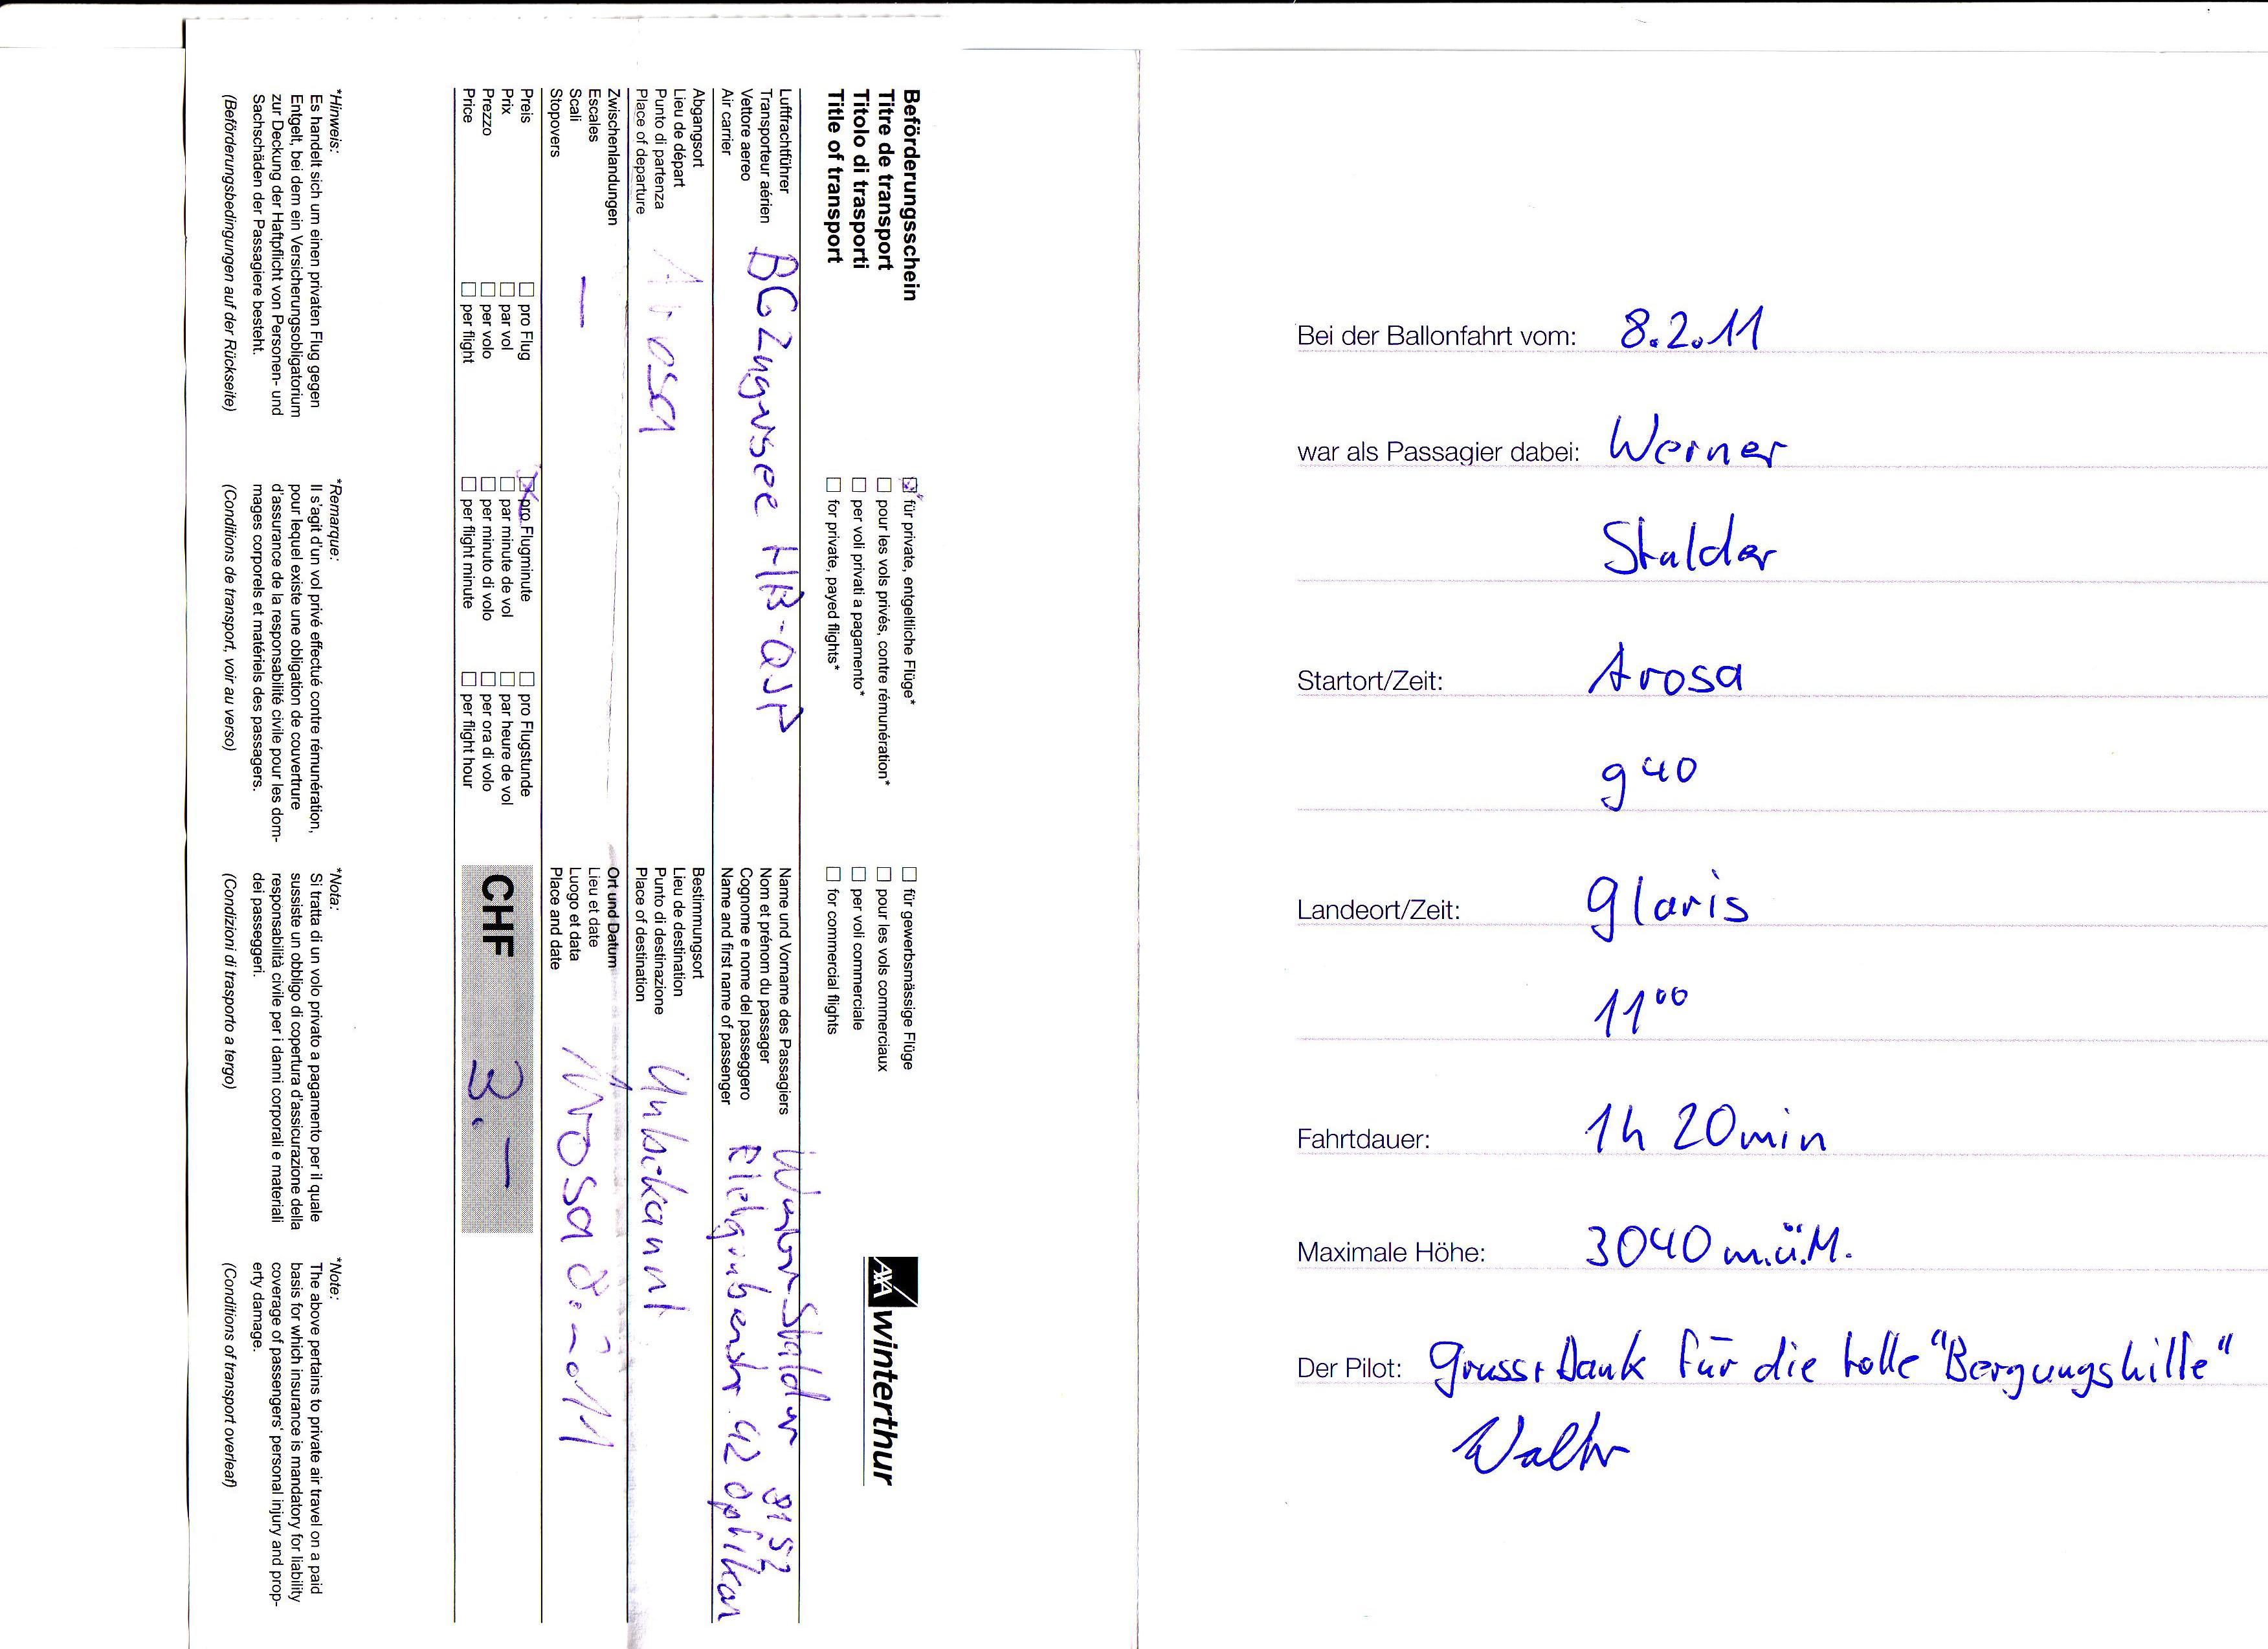 Beförderungsschein
Titre de transport
Titolo di trasporti
Title of transport
☒ für private, entgeltliche Flüge*
☐ pour les vols privés, contre rémunération*
☐ per voli privati a pagamento*
☐ for private, payed flights*
☐ für gewerbsmässige Flüge
☐ pour les vols commerciaux
☐ per voli commerciale
☐ for commercial flights
AXA winterthur
Luftfrachtführer
Transporteur aérien
Vettore aereo
Air carrier
BG Zugersee HB-QJP
Name und Vorname des Passagiers
Nom et prénom du passager
Cognome e nome del passeggero
Name and first name of passenger
Werner Stalder 8152
42 Opfikon
Abgangsort
Lieu de départ
Punto di partenza
Place of departure
Arosa
Bestimmungsort
Lieu de destination
Punto di destinazione
Place of destination
Unbekannt
Zwischenlandungen
Escales
Scali
Stopovers
—
Ort und Datum
Lieu et date
Luogo et data
Place and date
Arosa 8.2.011
Preis
Prix
Prezzo
Price
☐ pro Flug
☐ par vol
☐ per volo
☐ per flight
☒ pro Flugminute
☐ par minute de vol
☐ per minuto di volo
☐ per flight minute
☐ pro Flugstunde
☐ par heure de vol
☐ per ora di volo
☐ per flight hour
CHF 3.—
*Hinweis:
Es handelt sich um einen privaten Flug gegen
Entgelt, bei dem ein Versicherungsobligatorium
zur Deckung der Haftpflicht von Personen- und
Sachschäden der Passagiere besteht.
(Beförderungsbedingungen auf der Rückseite)
*Remarque:
Il s'agit d'un vol privé effectué contre rémunération,
pour lequel existe une obligation de couverture
d'assurance de la responsabilité civile pour les dom-
mages corporels et matériels des passagers.
(Conditions de transport, voir au verso)
*Nota:
Si tratta di un volo privato a pagamento per il quale
sussiste un obbligo di copertura d'assicurazione della
responsabilità civile per i danni corporali e materiali
dei passeggeri.
(Condizioni di trasporto a tergo)
*Note:
The above pertains to private air travel on a paid
basis for which insurance is mandatory for liability
coverage of passengers' personal injury and prop-
erty damage.
(Conditions of transport overleaf)
Bei der Ballonfahrt vom: 8.2.11
war als Passagier dabei: Werner
Stalder
Startort/Zeit: Arosa
9 40
Landeort/Zeit: Glaris
11 00
Fahrtdauer: 1h 20min
Maximale Höhe: 3040 m.ü.M.
Der Pilot: Gruss + Dank für die tolle "Bergungshilfe"
Walter